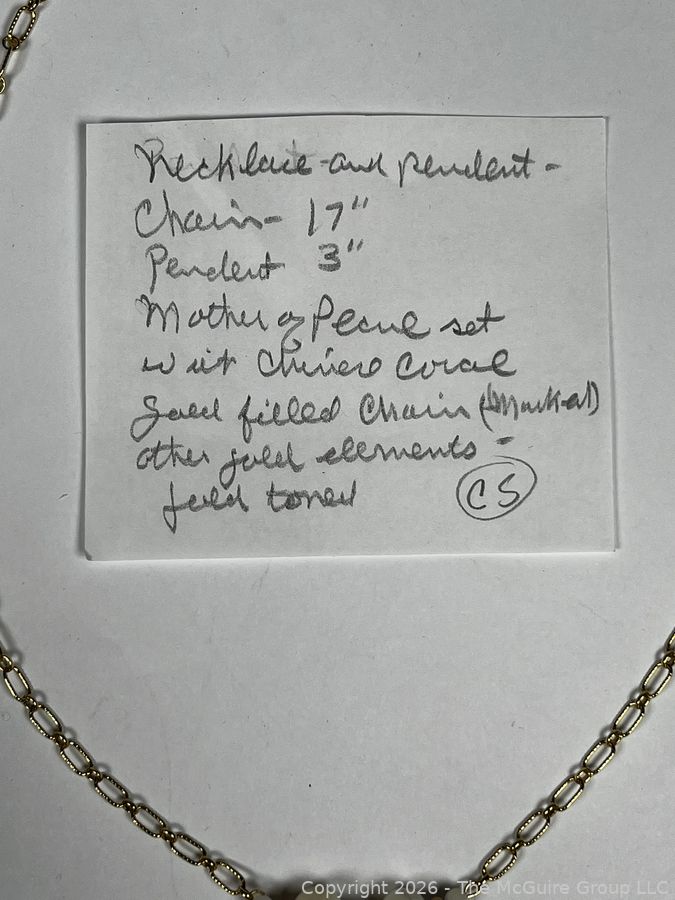 Necklace and pendent -
Chain - 17"
Pendent 3"
Mother of Pearl set
wit Chinese Coral
Gold filled Chain (Marked)
other gold elements -
gold toned
CS
Copyright 2026 - The McGuire Group LLC